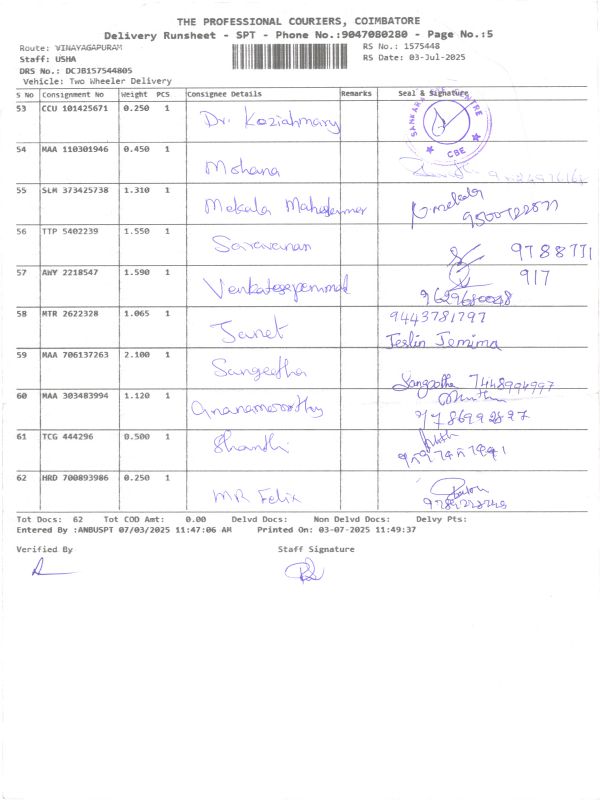 THE PROFESSIONAL COURIERS, COIMBATORE
Delivery Runsheet - SPT - Phone No.:9047080280 - Page No.:5
Route: VINAYAGAPURAM RS No.: 1575448
Staff: USHA RS Date: 03-Jul-2025
DRS No.: DCJB157544805
Vehicle: Two Wheeler Delivery
S No Consignment No Weight PCS Consignee Details Remarks Seal & Signature
53 CCU 101425671 0.250 1 Dr. Koziahmary CBE
54 MAA 110301946 0.450 1 Mohana
55 SLM 373425738 1.310 1 Mekala
56 TTP 5402239 1.550 1 Saravanan 9788771
917
57 AWY 2218547 1.590 1 Venkatesaperumal
58 MTR 2622328 1.065 1 Janet 9443781797
Jeslin Jemima
59 MAA 706137263 2.100 1 Sangeetha Sangeetha 7448994997
60 MAA 303483994 1.120 1 Gnanamoorthy
61 TCG 444296 0.500 1 Shandhi
62 HRD 700893986 0.250 1 MR Felix
Tot Docs: 62 Tot COD Amt: 0.00 Delvd Docs: Non Delvd Docs: Delvy Pts:
Entered By :ANBUSPT 07/03/2025 11:47:06 AM Printed On: 03-07-2025 11:49:37
Verified By Staff Signature